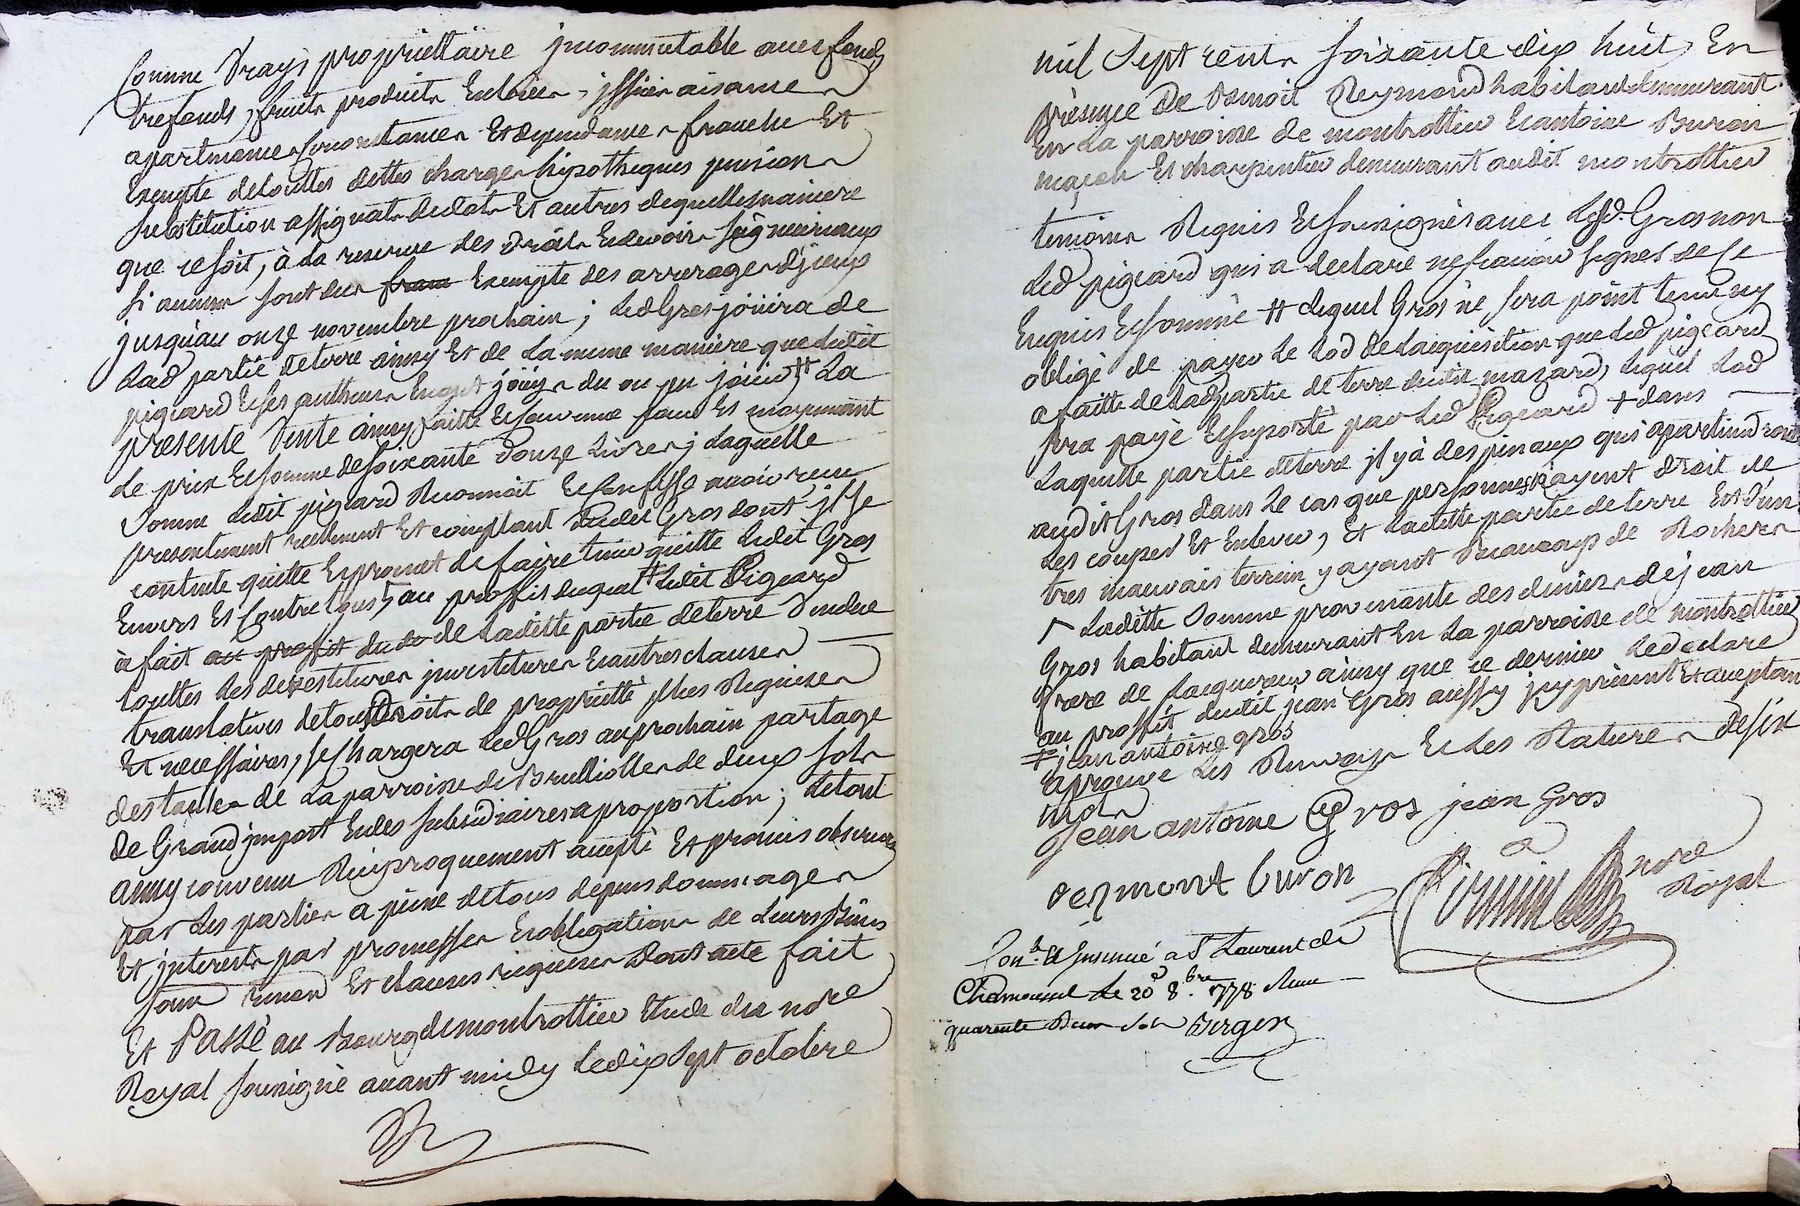 Comme Vrays propriettaire jncommutable avec fonds
trefonds, fruits produits Entrées, jssües aisances
apartenances Circonstances Et dependances franche Et
Exempte de touttes dettes charges hipotheques pension
substitution assignats dedats Et autres de quelle maniere
que ce soit, à la reserve des Droits Et devoirs seigneuriaux
si aucuns sont dus frans Exempte des arrerages d'jceux
jusqu'au onze novembre prochain ; Led Gros joüira de
Lad partie de terre ainsy Et de La meme maniere que dudit
pigeard Et ses autheurs En ont joüÿs du ou pu joüir, # La
presente Vente ainsy faitte Et convenue pour Et moyennant
Le prix Et somme de soixante Douze Livres ; Laquelle
Somme Ledit pigeard Reconnoit Et Confesse avoir reçu
presentement reellement Et comptant Dudit Gros dont jl se
contente quitte Et promet de faire tenir quitte Ledit Gros
Envers Et Contre tous, au proffit duquel # Ledit Pigeard
à fait au proffit du de Laditte partie de terre Vendue
touttes Les devestitures jnvestitures Et autres clauses
translatives de tous Droits de proprietté plus Requises
Et necessaires, se Chargera Led Gros au prochain partage
des tailles de La parroisse de Brullioles de deux sols
de Grand jmpost Et des subsidiaires a proportion ; Le tout
ainsy convenu Reciproquement accepté Et promis observer
par Les parties a peine de tous depens dommages
Et jnterests par promesses Et obligations de Leurs Biens
soum renon Et clauses requises Dont acte fait
Et Passé au Bourg de montrottier Etude du nore
Royal soussigné avant midy Le dix sept octobre
mil Sept cents soixante dix huit, En
presence De Benoit Reymond habitant demeurant
En La parroisse de montrottier Et antoine Buron
maçon Et charpentier demeurant audit montrottier
temoins Requis Et soussignés avec Lesd. Gros non
Led pigeard qui a declaré ne sçavoir signer de Ce
Enquis Et sommé # Lequel Gros ne sera point tenu ny
obligé de payer Le Lod de L'acquisition que Led pigeard
a faitte de Lad partie de terre dudit mazard, Lequel Lod
sera payé Et suporté par Led Pigeard + dans
Laquelle partie de terre jl y à des pinaux qui apartiendront
audit Gros dans Le cas que personnes n'ayent droit de
Les couper Et Enlever, Et Laditte partie de terre Est d'un
tres mauvais terrein y ayant Beaucoup de Rochers
Laditte Somme provenante des deniers de jean
Gros habitant demeurant En La parroisse de montrottier
frere de L'acquereur ainsy que ce dernier Le declare
au proffit dudit jean Gros aussy jcy present Et acceptant
# jean antoine gros
aprouvé Les Renvoys Et les Ratures de six
mots
Jean antoine Gros jean Gros
reymont buron
nore
Royal
Con. & Insinué a St Laurent de
Chamousset Le 20 8.bre 1778 Reçu
quarente Deux sols Berger